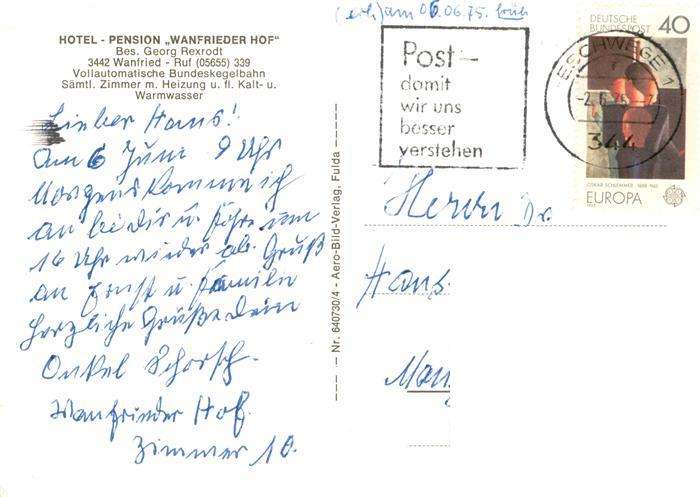 HOTEL - PENSION „WANFRIEDER HOF"
Bes. Georg Rexrodt
3442 Wanfried - Ruf (05655) 339
Vollautomatische Bundeskegelbahn
Sämtl. Zimmer m. Heizung u. fl. Kalt- u.
Warmwasser
Lieber Hans!
Am 6 Juni 9 Uhr
Morgens komme ich
an bei dir u. fahre um
16 Uhr wieder ab. Gruß
an Ernst u. Familn
herzliche Grüße dein
Onkel Schorsch.
Wanfrieder Hof.
Zimmer 10.
Nr. 640730/4 - Aero-Bild-Verlag, Fulda
(erh.) am 06.06.75. früh
Post-
damit
wir uns
besser
verstehen
ESCHWEGE 1
344
DEUTSCHE
BUNDESPOST
40
OSKAR SCHLEMMER
EUROPA
Herrn Dr.
Hans